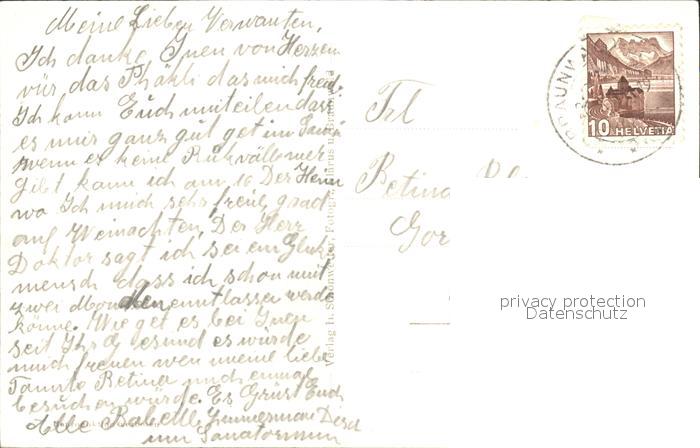 Meine Lieben Verwanten,
Ich danke Inen von Herzen
vür das Päkli das mich freut.
Ich kann Euch mitteilen dass
es mir ganz gut get im Sana
wenn es keine Rükvälle mer
gibt kann ich am 16 Dez Heim
wo Ich mich sehr freue grad
auf Weinachten, Der Herr
Doktor sagt ich sei ein Glük
mensch dass ich schon mit
zwei Monaten enntlassen werde
könne. Wie get es bei Inen
seit Ihr gesund es würde
mich freuen wen meine liebe
Tannte Betina mich einmal
besuchen würde. Es Grüst Euch
Alle Babette Zimmerman
im Sanatorium
Frl
Betina
Gor
BRAUNWALD
10 HELVETIA
privacy protection
Datenschutz